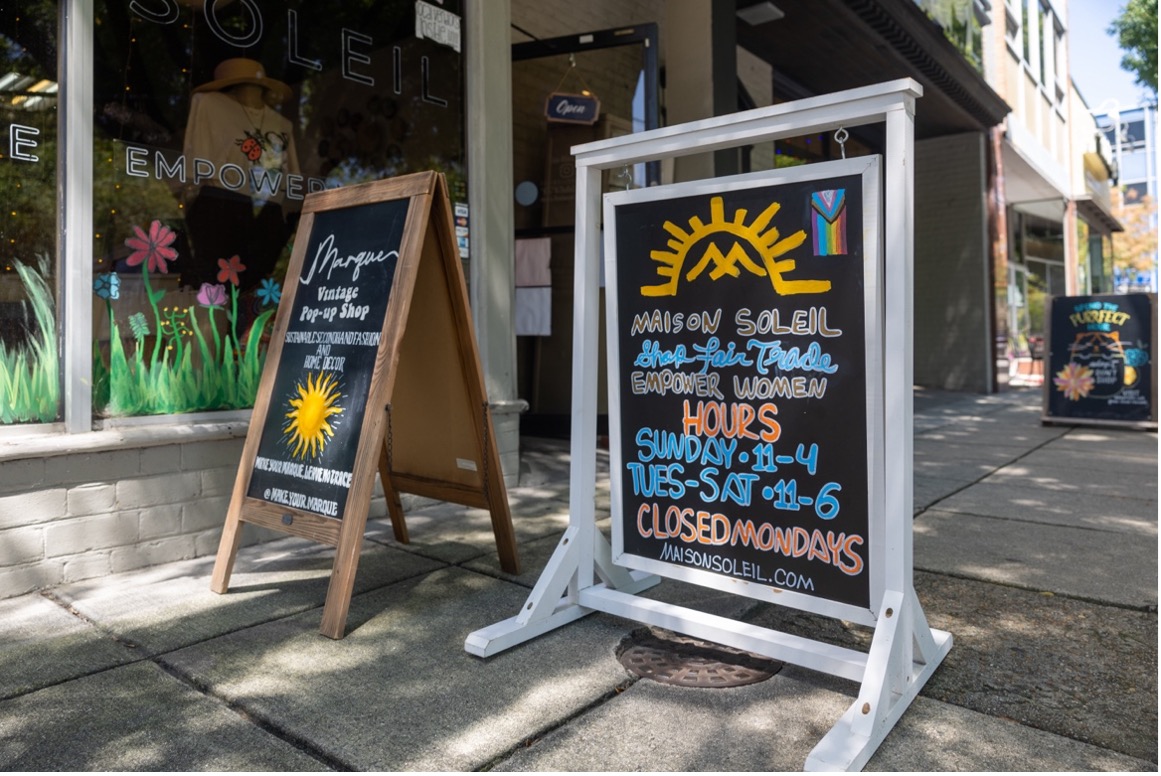 SOLEIL
E
EMPOWER
Open
Marque
Vintage
Pop-up Shop
SUSTAINABLE SECONDHAND FASHION
AND
HOME DECOR
MAKE YOUR MARQUE, LEAVE NO TRACE
@MAKE.YOUR.MARQUE
MAISON SOLEIL
Shop Fair Trade
EMPOWER WOMEN
HOURS
SUNDAY • 11-4
TUES-SAT • 11-6
CLOSED MONDAYS
MAISONSOLEIL.COM
PURRFECT